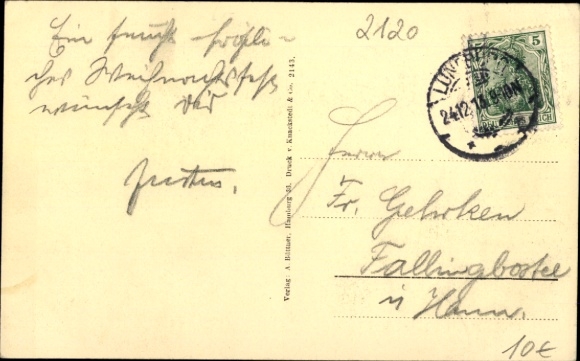 Ein recht fröhli-
ches Weihnachtsfest
wünscht Dir
Justus.
2120
5
LÜNEBURG
24.12.
Verlag: A. Büttner, Hamburg 33. Druck v. Knackstedt & Co. 2143.
Herrn
Fr. Gehrken
Fallingbostel
i/ Hann.
10€